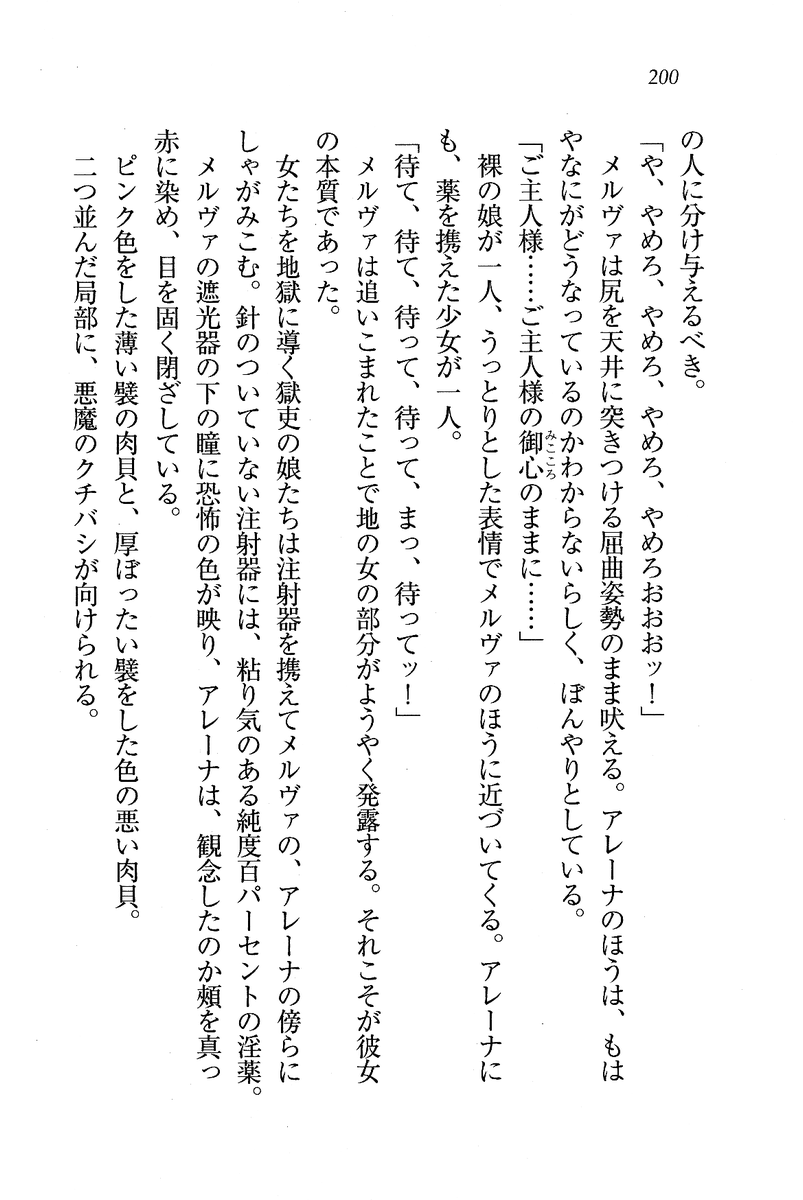 200
の人に分け与えるべき。
「や、やめろ、やめろ、やめろ、やめろおおおッ！」
メルヴァは尻を天井に突きつける屈曲姿勢のまま吠える。アレーナのほうは、もは
やなにがどうなっているのかわからないらしく、ぼんやりとしている。
「ご主人様……ご主人様の御心みこころのままに……」
裸の娘が一人、うっとりとした表情でメルヴァのほうに近づいてくる。アレーナに
も、薬を携えた少女が一人。
「待て、待て、待って、待って、まっ、待ってッ！」
メルヴァは追いこまれたことで地の女の部分がようやく発露する。それこそが彼女
の本質であった。
女たちを地獄に導く獄吏の娘たちは注射器を携えてメルヴァの、アレーナの傍らに
しゃがみこむ。針のついていない注射器には、粘り気のある純度百パーセントの淫薬。
メルヴァの遮光器の下の瞳に恐怖の色が映り、アレーナは、観念したのか頬を真っ
赤に染め、目を固く閉ざしている。
ピンク色をした薄い襞の肉貝と、厚ぼったい襞をした色の悪い肉貝。
二つ並んだ局部に、悪魔のクチバシが向けられる。